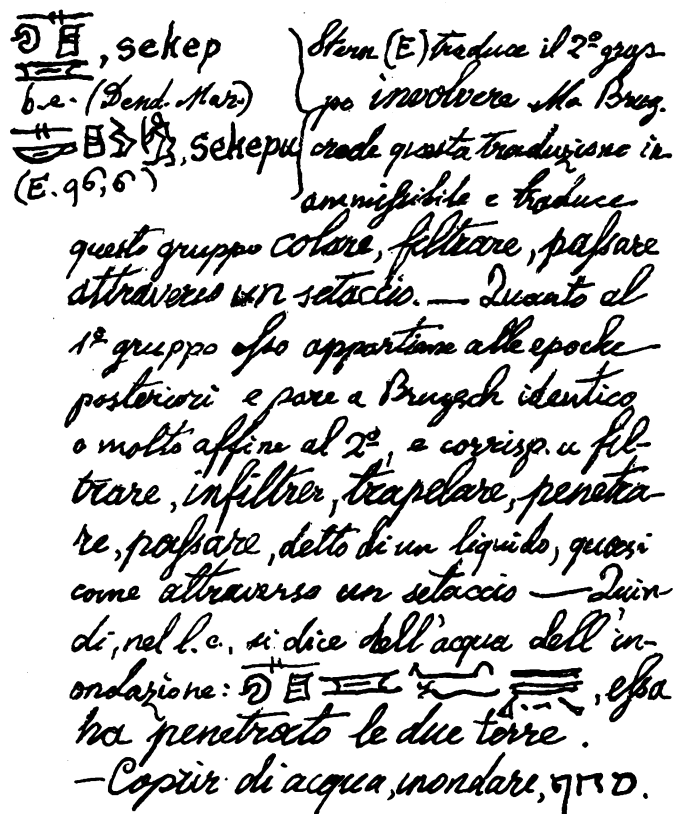 , sekep
b.e. (Dend. Mar.)
, sekepu
(E. 96,6)
Stern (E) traduce il 2º grup
po involvere Ma Brug.
crede questa traduzione in
ammissibile e traduce
questo gruppo colare, filtrare, passare
attraverso un setaccio. — Quanto al
1º gruppo esso appartiene alle epoche
posteriori e pare a Brugsch identico
o molto affine al 2º, e corrisp. a fil-
trare, infiltrer, trapelare, penetra-
re, passare, detto di un liquido, quasi
come attraverso un setaccio — Quin-
di, nel l.c., si dice dell'acqua dell'in-
ondazione: , essa
ha penetrato le due terre.
— Coprir di acqua, inondare, סחף.